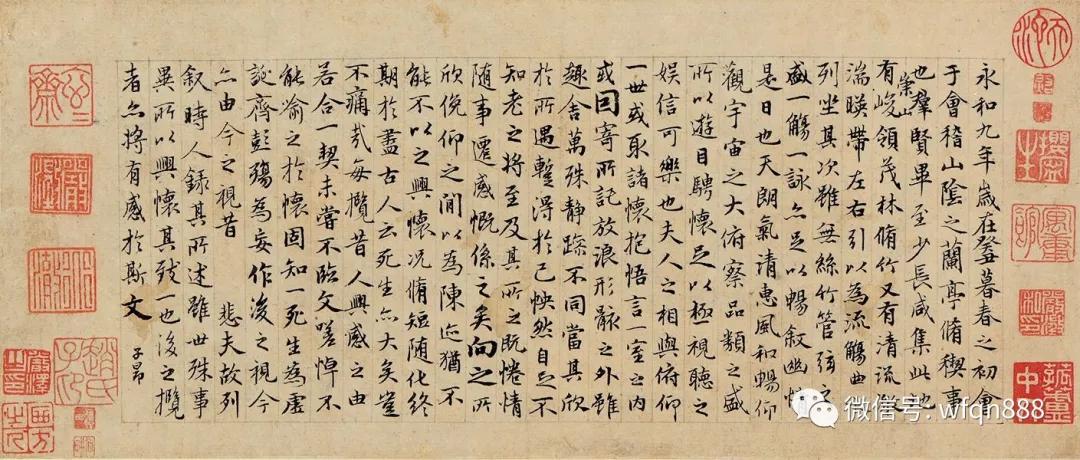 永和九年歲在癸暮春之初會
于會稽山陰之蘭亭脩稧事
也羣賢畢至少長咸集此地
有崇山峻領茂林脩竹又有清流激
湍暎帶左右引以為流觴曲
列坐其次雖無絲竹管弦之
盛一觴一詠亦足以暢敘幽情
是日也天朗氣清惠風和暢仰
觀宇宙之大俯察品類之盛
所以遊目騁懷足以極視聽之
娛信可樂也夫人之相與俯仰
一世或取諸懷抱悟言一室之內
或因寄所託放浪形骸之外雖
趣舍萬殊静躁不同當其欣
於所遇蹔得於己怏然自足不
知老之將至及其所之既惓情
随事遷感慨係之矣向之所
欣俛仰之間以為陳迹猶不
能不以之興懷況脩短随化終
期於盡古人云死生亦大矣豈
不痛哉每攬昔人興感之由
若合一契未嘗不臨文嗟悼不
能喻之於懷固知一死生為虛
誕齊彭殤為妄作後之視今
亦由今之視昔 悲夫故列
敘時人錄其所述雖世殊事
異所以興懷其致一也後之攬
者亦將有感於斯文
子昂
微信号: wfqn888